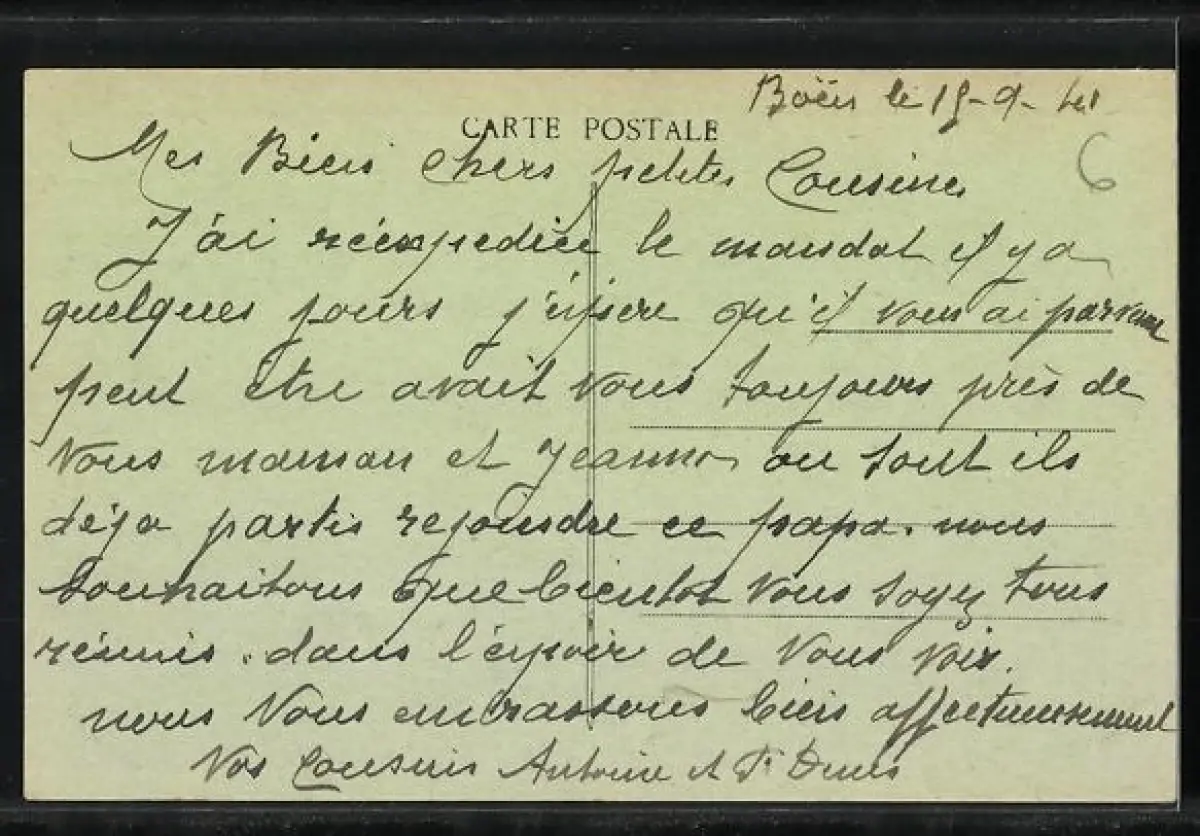 Boën le 15-9-41
CARTE POSTALE
6
Mes Biens chers petites Cousines
J'ai réexpediée le mandat il y a
quelques jours j'éspere qu'il vous ai parvenu
peut être avait vous toujours près de
vous maman et Jeannot ou sont ils
déja partis rejoindre ce papa. nous
souhaitons que bientot vous soyez tous
réunis. dans l'éspoir de vous voir.
nous vous embrassons bien affectueusement
Vos Cousins Antoine et